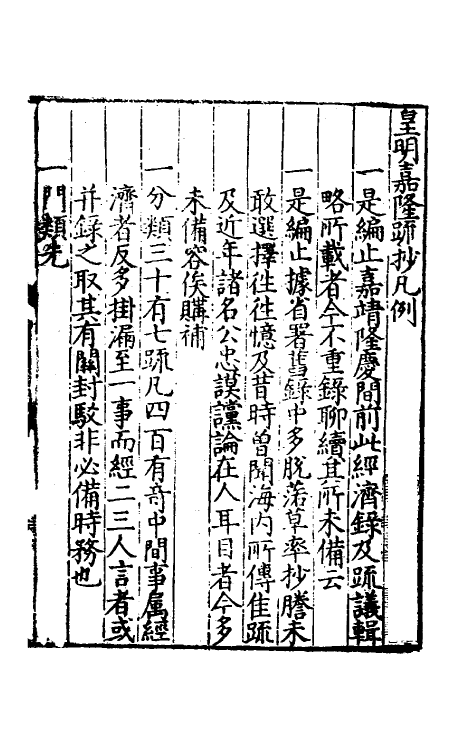 皇明嘉隆疏抄凡例
一是編止嘉靖隆慶間前此經濟錄及疏議輯
略所載者今不重錄聊續其所未備云
一是編止據省署舊錄中多脫落草率抄謄未
敢選擇往往憶及昔時曾聞海內所傳佳疏
及近年諸名公忠謨讜論在人耳目者今多
未備容俟購補
一分類三十有七疏凡四百有奇中間事属經
濟者反多掛漏至一事而經二三人言者或
并錄之取其有關封駁非必備時務也
一門類先